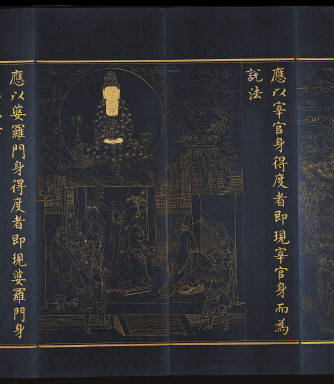 應以宰官身得度者即現宰官身而為
說法
應以婆羅門身得度者即現婆羅門身